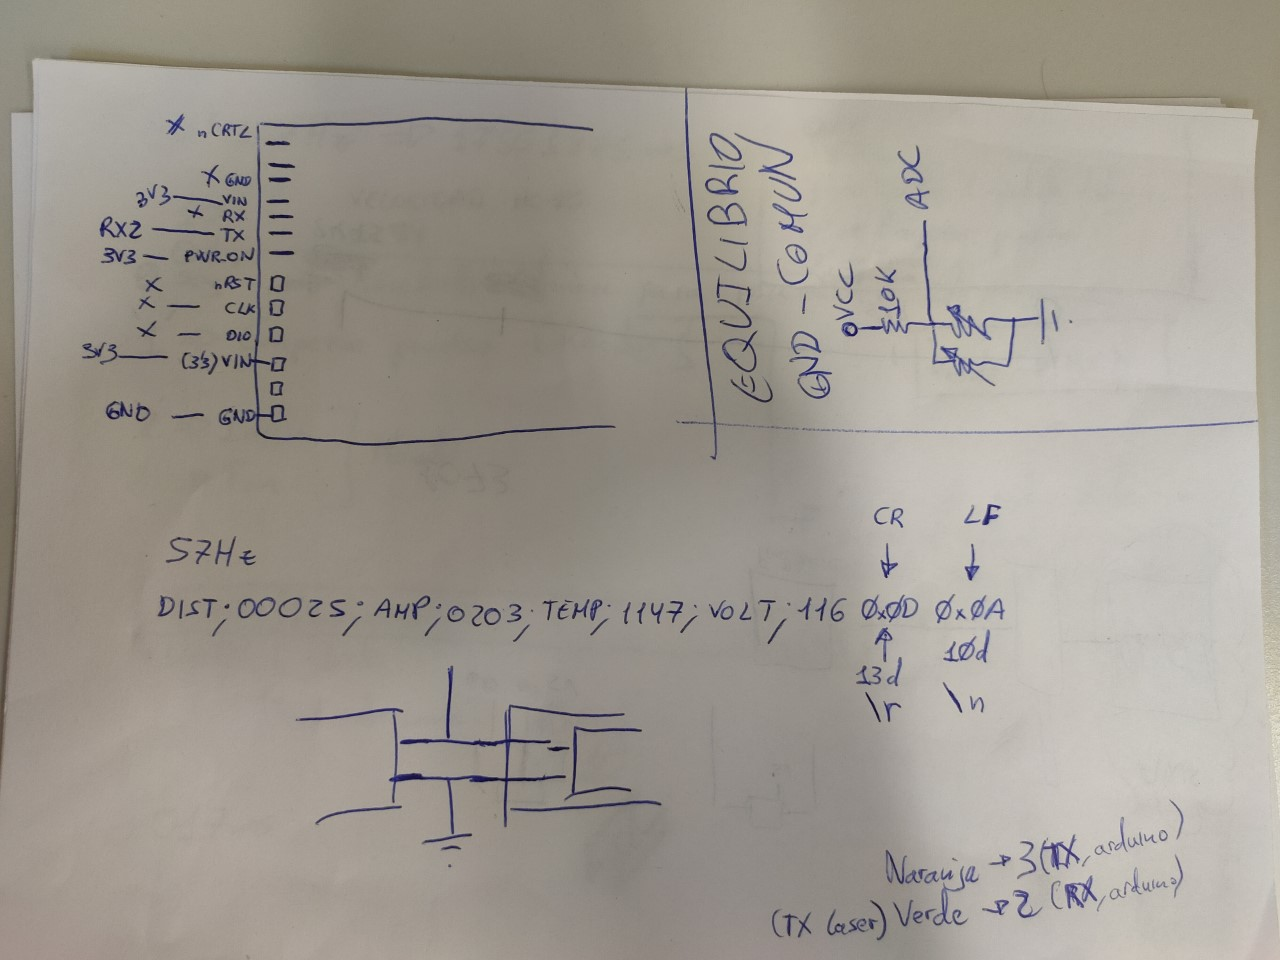 X nCRTL
X GND
3V3 — VIN
X RX
RX2 — TX
3V3 — PWR_ON
X nRST
X — CLK
X — DIO
3V3 — (3'3) VIN
GND — GND
EQUILIBRIO
GND - COMUN
VCC
10K
ADC
57Hz
CR LF
DIST;00025;AMP;0203;TEMP;1147;VOLT;116 0x0D 0x0A
13d 10d
\r \n
Naranja → 3 (TX, arduino)
(TX laser) Verde → 2 (RX, arduino)